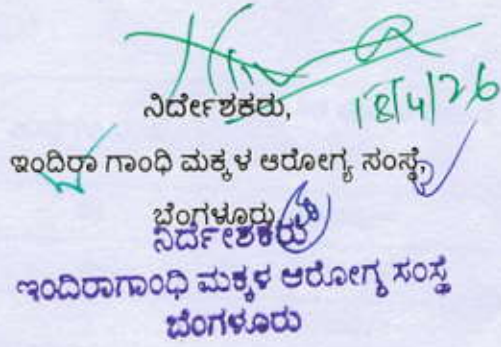 18/4/26
ನಿರ್ದೇಶಕರು,
ಇಂದಿರಾ ಗಾಂಧಿ ಮಕ್ಕಳ ಆರೋಗ್ಯ ಸಂಸ್ಥೆ,
ಬೆಂಗಳೂರು
ನಿರ್ದೇಶಕರು
ಇಂದಿರಾಗಾಂಧಿ ಮಕ್ಕಳ ಆರೋಗ್ಯ ಸಂಸ್ಥೆ
ಬೆಂಗಳೂರು